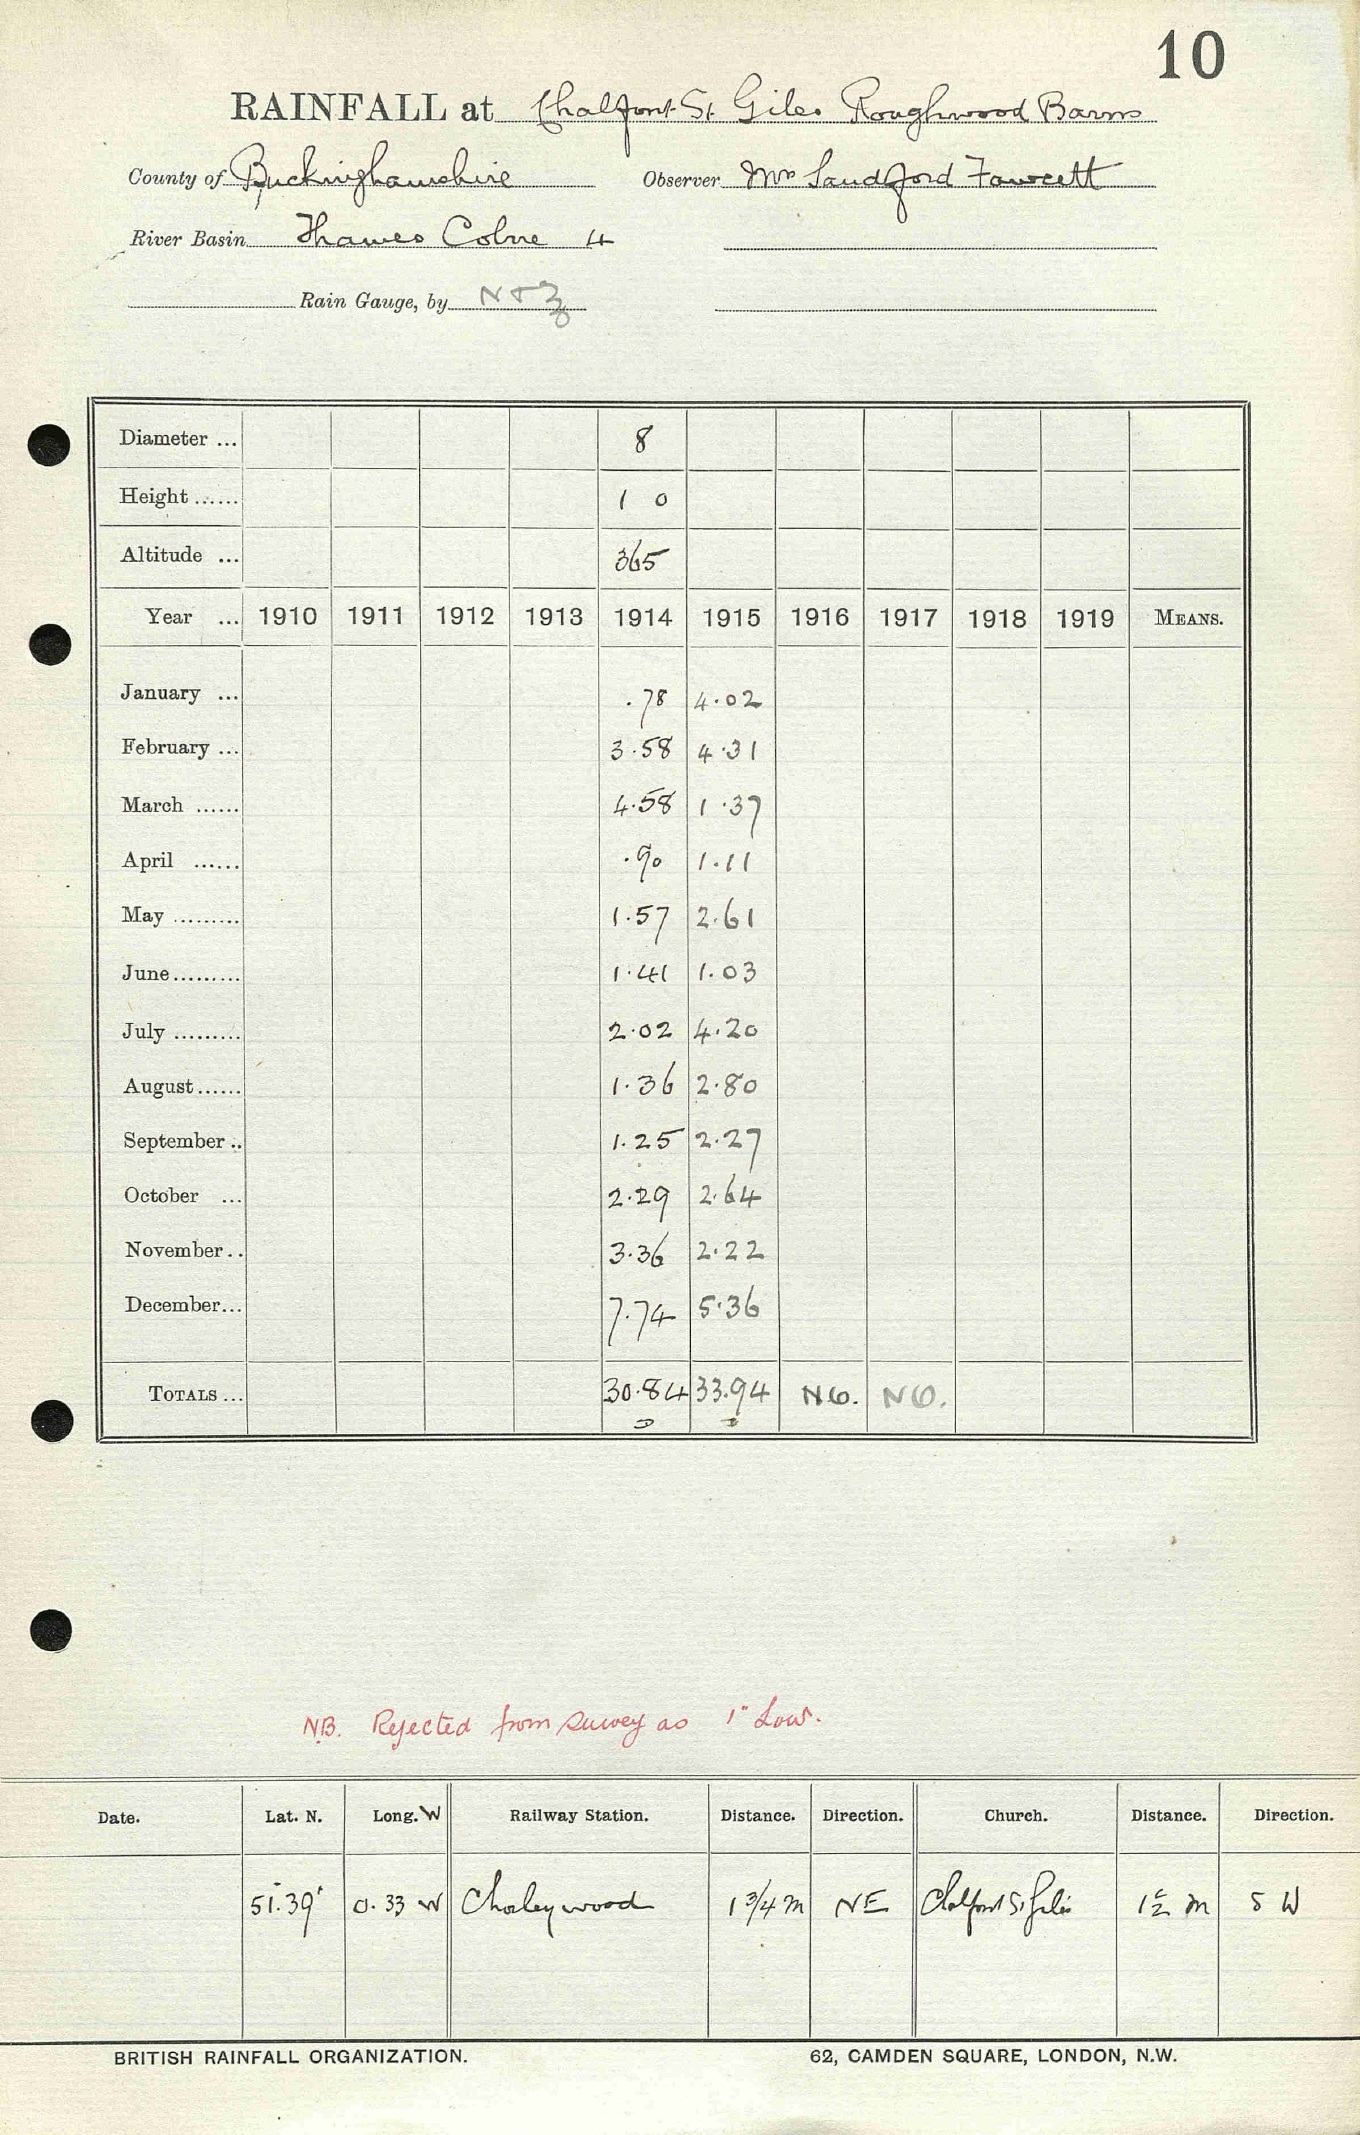 10
RAINFALL at Chalfont St. Giles Roughwood Barns
County of Buckinghamshire Observer Mrs Sandford Fawcett
River Basin Thames Colne 4
Rain Gauge, by N+Z
Diameter ... 8
Height ...... 1 0
Altitude ... 365
Year ... 1910 1911 1912 1913 1914 1915 1916 1917 1918 1919 MEANS.
January ... .78 4.02
February ... 3.58 4.31
March ...... 4.58 1.37
April ...... .90 1.11
May ......... 1.57 2.61
June ......... 1.41 1.03
July ......... 2.02 4.20
August ...... 1.36 2.80
September .. 1.25 2.27
October ... 2.29 2.64
November .. 3.36 2.22
December ... 7.74 5.36
TOTALS ... 30.84 33.94 NO. NO.
NB. Rejected from survey as 1" Low.
Date. Lat. N. Long. W Railway Station. Distance. Direction. Church. Distance. Direction.
51.39' 0.33 W Chorleywood 1 3/4 m NE Chalfont St Giles 1 1/2 m S W
BRITISH RAINFALL ORGANIZATION. 62, CAMDEN SQUARE, LONDON, N.W.